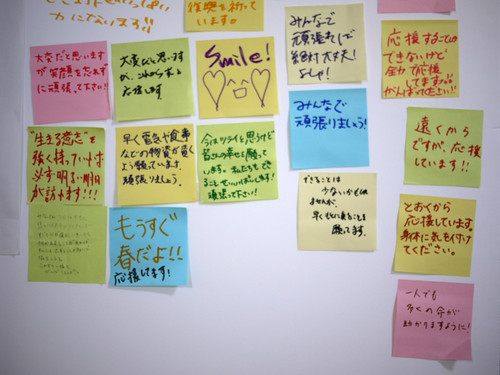 力になります!!
復興を祈って
います。
大変だと思います
が笑顔を忘れず
に頑張って下さい!!
大変だと思います
が、
応援します
Smile!
みんなで
頑張れば
絶対大丈夫!
よしゃ!
応援することしか
できないけど
全力で応援
してますので
がんばってください!!
"生きる意志"を
強く持っていれば
必ず明るい明日
が訪れます!!!
早く電気や食事
などの物資が届く
よう願っています。
頑張りましょう。
今はツライと思うけど
皆さんの幸せを願って
います。私たちもで
きることせいいっぱいします!
頑張って下さい!
みんなで
頑張りましょう!
遠くから
ですが、応援
しています!!
もうすぐ
春だよ!!
応援してます!
できることは
少ないかもしれ
ませんが、
早く元に戻ることを
願ってます。
とおくから
応援しています。
身体に気を付けて
ください。
一人でも
多くの命が
助かりますように!